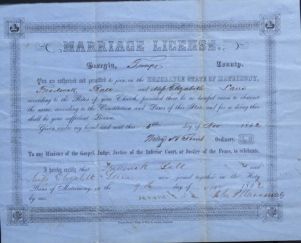 MARRIAGE LICENSE.
Georgia, Troup County.
You are authorized and permitted to join in the HONORABLE STATE OF MATRIMONY,
Frederick Ball and Miss Elizabeth
according to the Rites of your Church, provided there be no lawful cause to obstruct
the same, according to the Constitution and Laws of this State, and for so doing this
shall be your sufficient License.
Given under my hand and seal this 8th day of Nov 1862
Ordinary.
To any Minister of the Gospel, Judge, Justice of the Inferior Court, or Justice of the Peace, to celebrate.
I hereby certify that Frederick Ball and
Miss Elizabeth were joined together in the Holy
Bans of Matrimony on the 9th day of Nov 1862
by me.